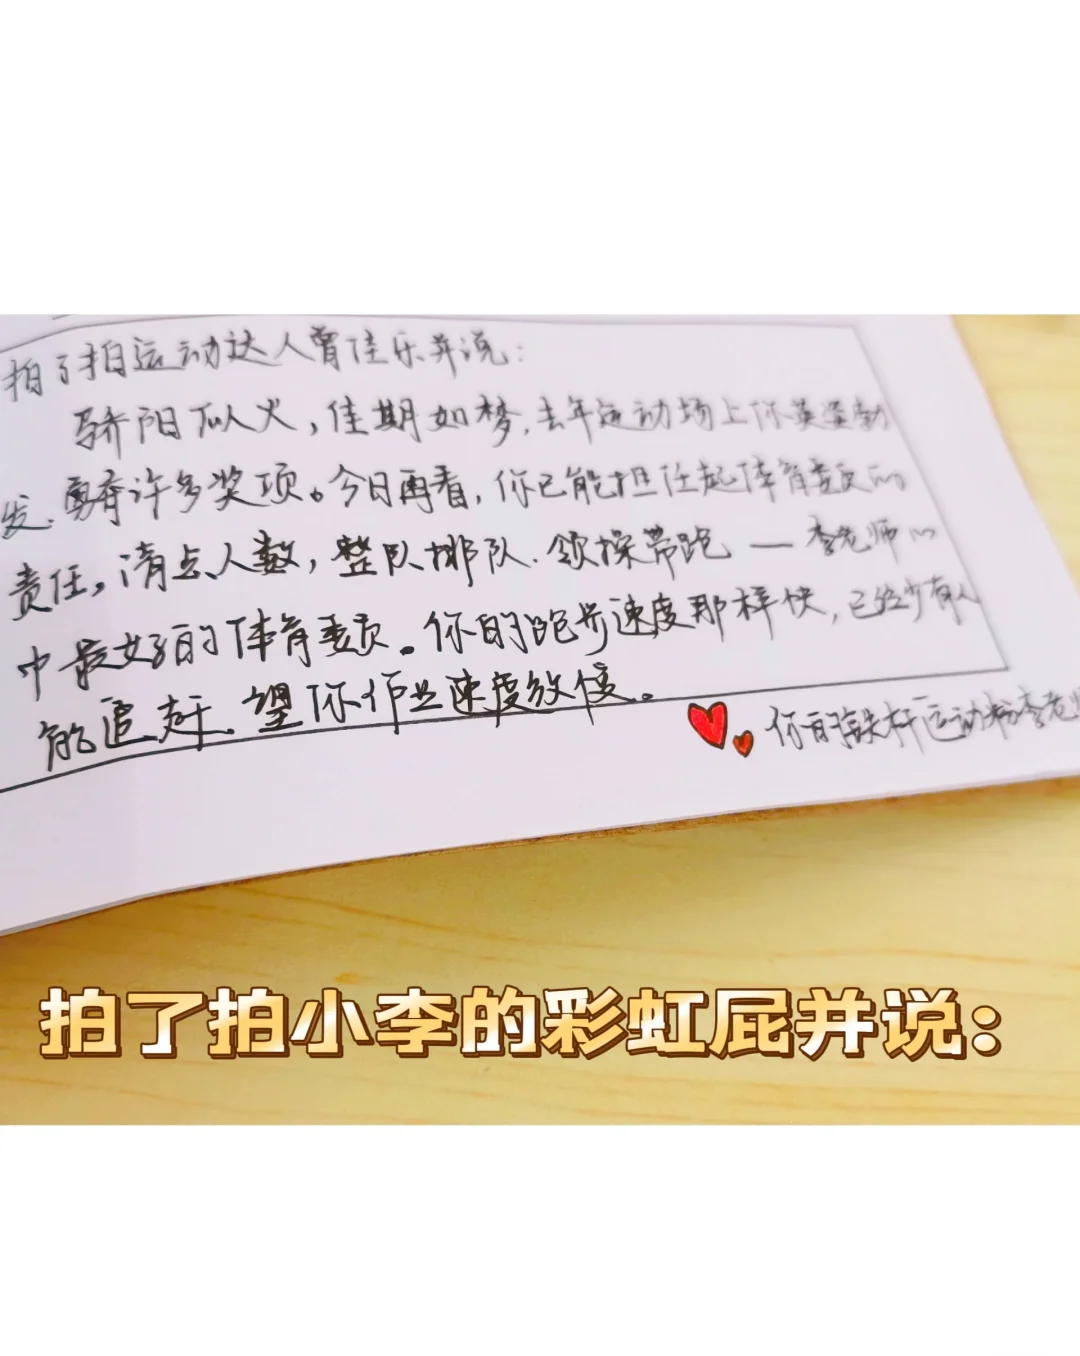 拍了拍运动达人曾佳乐并说：
骄阳似火，佳期如梦，去年运动场上你英姿勃
发，勇夺许多奖项。今日再看，你已能担任起体育委员的
责任，清点人数，整队排队，领操带跑 — 李老师心
中最好的体育委员。你的跑步速度那样快，已经少有人
能追赶，望你作业速度放倍。
你的铁杆运动粉李老
拍了拍小李的彩虹屁并说：